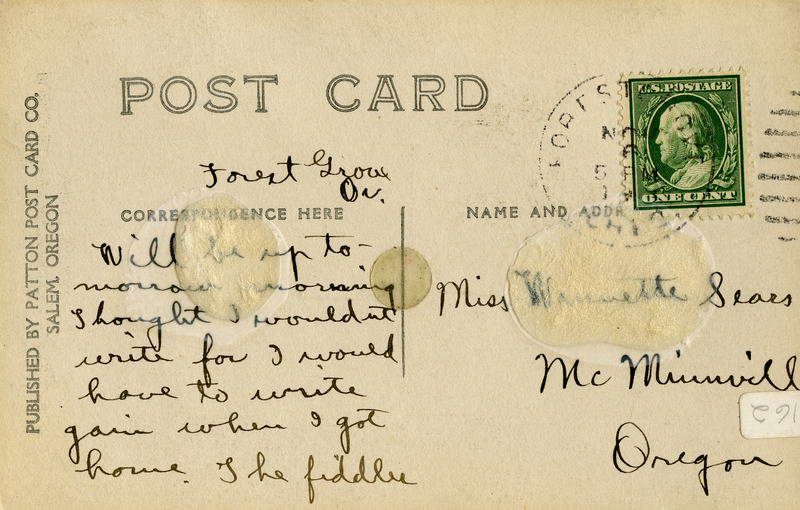 POST CARD
U.S. POSTAGE
ONE CENT
FOREST
Forest Grove
Or.
CORRESPONDENCE HERE
NAME AND ADDR
Will be up to-
morrow morning
Thought I wouldnt
write for I would
have to write
gain when I got
home. The fiddler
Miss Winnette Sears
McMinnvill
Oregon
162
PUBLISHED BY PATTON POST CARD CO.
SALEM, OREGON